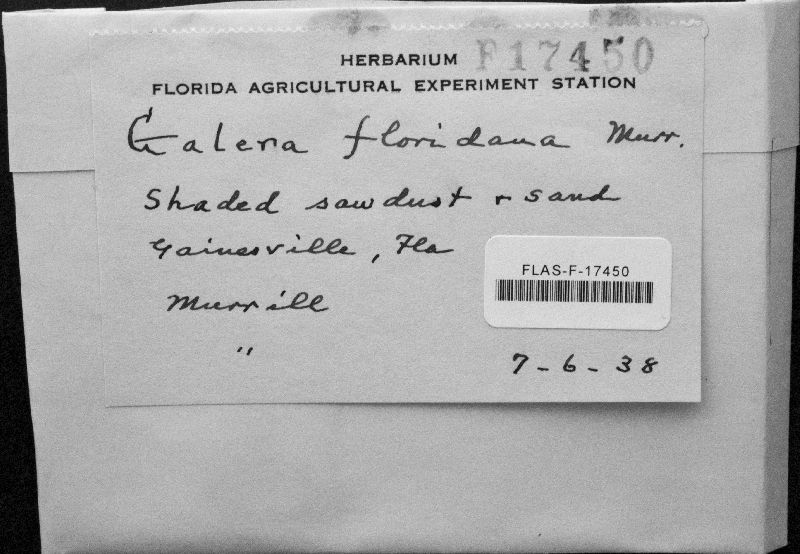 HERBARIUM F17450
FLORIDA AGRICULTURAL EXPERIMENT STATION
Galera floridana Murr.
Shaded sawdust & sand
Gainesville, Fla
FLAS-F-17450
Murrill
"
7-6-38